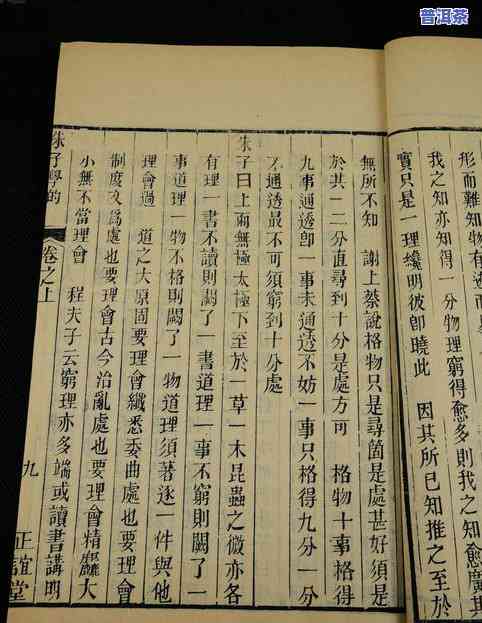 普洱茶
形而難知物有迹而
我之知亦知得一分物理窮得愈多則我之知愈廣其
實只是一理纔明彼卽曉此 因其所已知推之至於
無所不知 謝上蔡說格物只是尋箇是處甚好須是
於其一二分直尋到十分是處方可 格物十事格得
九事通透卽一事未通透不妨一事只格得九分一分
不通透最不可須窮到十分處
朱子曰上而無極太極下至於一草一木昆蟲之微亦各
有理一書不讀則闕了一書道理一事不窮則闕了一
事道理一物不格則闕了一物道理須著逐一件與他
理會過 道之大原固要理會纖悉委曲處也要理會
制度文爲處也要理會古今治亂處也要理會精麤大
小無不當理會 程夫子云窮理亦多端或讀書講明
朱子學的 卷之上 九 正誼堂